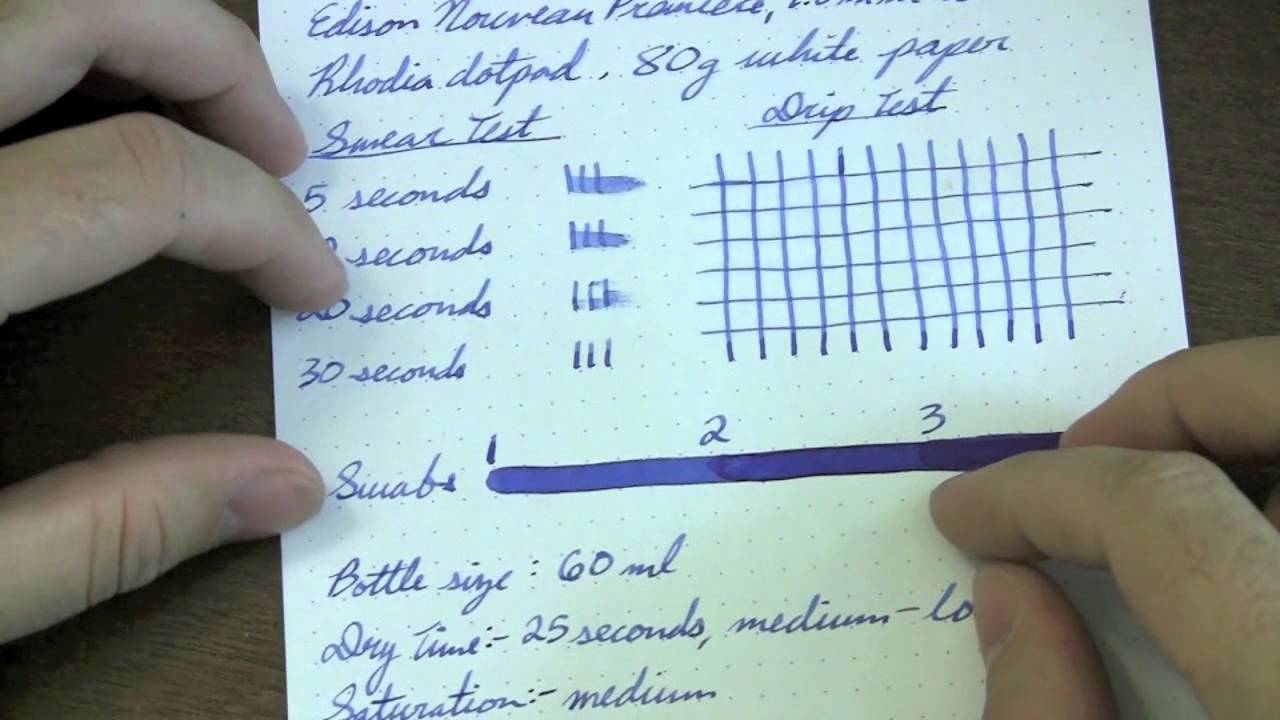 Edison Nouveau Premiere,
Rhodia dotpad, 80g white paper
Smear Test Drip Test
5 seconds
seconds
20 seconds
30 seconds
1 2 3
Swabs
Bottle size: 60 ml
Dry Time:- 25 seconds, medium-lo
Saturation:- medium